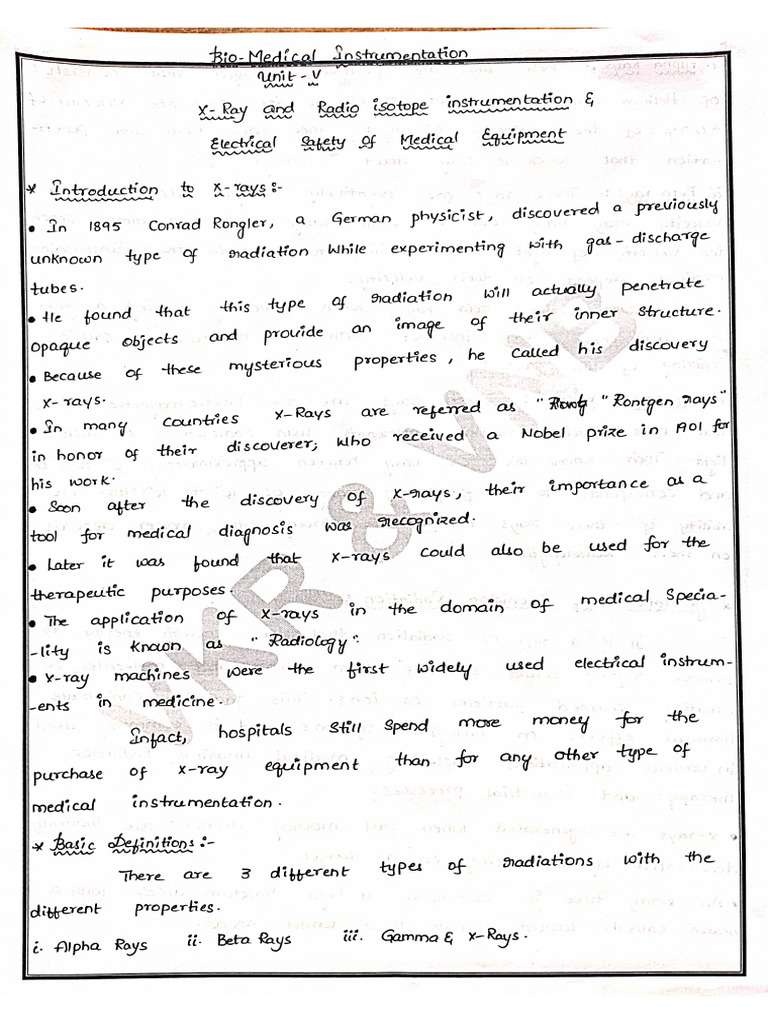 Bio-Medical Instrumentation
Unit-V
X-Ray and Radio isotope instrumentation &
Electrical Safety of Medical Equipment
* Introduction to X-rays:-
• In 1895 Conrad Rongler, a German physicist, discovered a previously
unknown type of radiation while experimenting with gas-discharge
tubes.
• He found that this type of radiation will actually penetrate
opaque objects and provide an image of their inner structure.
• Because of these mysterious properties, he called his discovery
X-rays.
• In many countries X-Rays are referred as " "Rontgen rays"
in honor of their discoverer; who received a Nobel prize in 1901 for
his work.
• Soon after the discovery of X-rays, their importance as a
tool for medical diagnosis was recognized.
• Later it was found that X-rays could also be used for the
therapeutic purposes.
• The application of X-rays in the domain of medical Specia-
-lity is known as "Radiology".
• X-ray machines were the first widely used electrical instrum-
-ents in medicine.
Infact, hospitals still spend more money for the
purchase of X-ray equipment than for any other type of
medical instrumentation.
* Basic Definitions:-
There are 3 different types of radiations with the
different properties.
i. Alpha Rays ii. Beta Rays iii. Gamma & X-Rays.
VKR & VNB